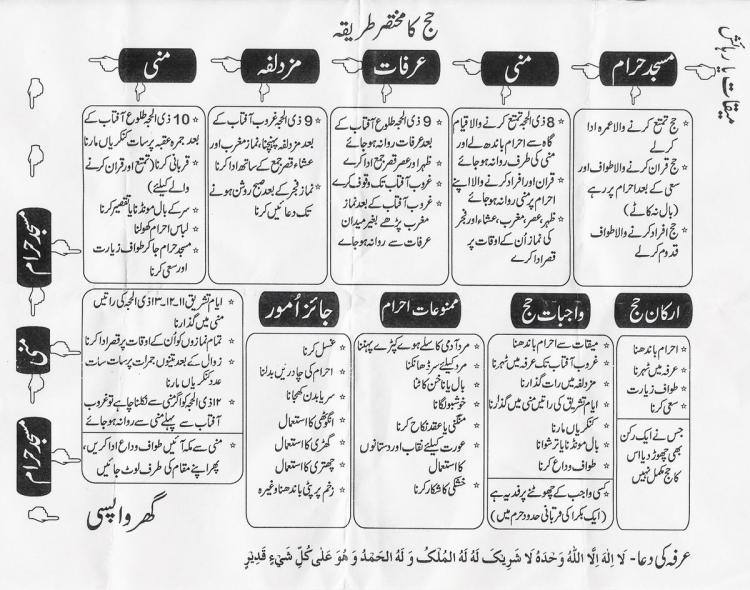 حج کا مختصر طریقہ
میقات یا رہائش
مسجد حرام
* حج تمتع کرنے والا عمرہ ادا
کرلے
* حج قران کرنے والا طواف اور
سعی کے بعد احرام پر رہے
(بال نہ کاٹے)
* حج افراد کرنے والا طواف
قدوم کرلے
منیٰ
* 8 ذی الحجہ تمتع کرنے والا قیام
گاہ سے احرام باندھ لے اور
منی کی طرف روانہ ہو جائے
* قران اور افراد کرنے والا اپنے
احرام پر منی روانہ ہو جائے
* ظہر، عصر، مغرب، عشاء اور فجر
کی نماز اُن کے اوقات پر
قصر ادا کرے
عرفات
* 9 ذی الحجہ طلوع آفتاب کے
بعد عرفات روانہ ہو جائے
* ظہر اور عصر قصر جمع ادا کرے
* غروب آفتاب تک وقوف کرے
* غروب آفتاب کے بعد نماز
مغرب پڑھے بغیر میدان
عرفات سے روانہ ہو جائے
مزدلفہ
* 9 ذی الحجہ غروب آفتاب کے
بعد مزدلفہ پہنچنا، نماز مغرب اور
عشاء قصر جمع کے ساتھ ادا کرنا
* نماز فجر کے بعد صبح روشن ہونے
تک دعائیں کرنا
منیٰ
* 10 ذی الحجہ طلوع آفتاب کے
بعد جمرہ عقبہ پر سات کنکریاں مارنا
* قربانی کرنا (تمتع اور قران کرنے
والے کیلئے)
* سر کے بال مونڈنا یا تقصیر کرنا
* لباس احرام کھولنا
* مسجد حرام جا کر طواف زیارت
اور سعی کرنا
مسجد حرام
منیٰ
* ایام تشریق ۱۱-۱۲-۱۳ ذی الحجہ کی راتیں
منی میں گذارنا
* تمام نمازوں کو اُن کے اوقات پر قصر ادا کرنا
* زوال کے بعد تینوں جمرات پر سات سات
عدد کنکریاں مارنا
* ۱۲ ذی الحجہ کو اگر منی سے نکلنا چاہے تو غروب
آفتاب سے پہلے منی سے روانہ ہو جائے
مسجد حرام
* منی سے مکہ آئیں طواف وداع ادا کریں،
پھر اپنے مقام کی طرف لوٹ جائیں
گھر واپسی
ارکان حج
* احرام باندھنا
* عرفہ میں ٹہرنا
* طواف زیارت
* سعی کرنا
جس نے ایک رکن
بھی چھوڑ دیا اس
کا حج مکمل نہیں
واجبات حج
* میقات سے احرام باندھنا
* غروب آفتاب تک عرفہ میں ٹہرنا
* مزدلفہ میں رات گذارنا
* ایام تشریق کی راتیں منی میں گذارنا
* کنکریاں مارنا
* بال مونڈنا یا ترشوانا
* طواف وداع کرنا
* کسی واجب کے چھوٹنے پر فدیہ ہے
(ایک بکرا کی قربانی حدود حرم میں)
ممنوعات احرام
* مرد آدمی کا سلے ہوے کپڑے پہننا
* مرد کیلئے سر ڈھانکنا
* بال یا ناخن کاٹنا
* خوشبو لگانا
* منگنی یا عقد نکاح کرنا
* عورت کیلئے نقاب اور دستانوں
کا استعمال
* خشکی کا شکار کرنا
جائز اُمور
* غسل کرنا
* احرام کی چادریں بدلنا
* سر یا بدن کھجانا
* انگوٹھی کا استعمال
* گھڑی کا استعمال
* چھتری کا استعمال
* زخم پر پٹی باندھنا وغیرہ
عرفہ کی دعا - لَا اِلٰهَ اِلَّا اللّٰهُ وَحْدَهُ لَا شَرِيْكَ لَهُ لَهُ الْمُلْكُ وَ لَهُ الْحَمْدُ وَ هُوَ عَلٰى كُلِّ شَيْءٍ قَدِيْرٌ